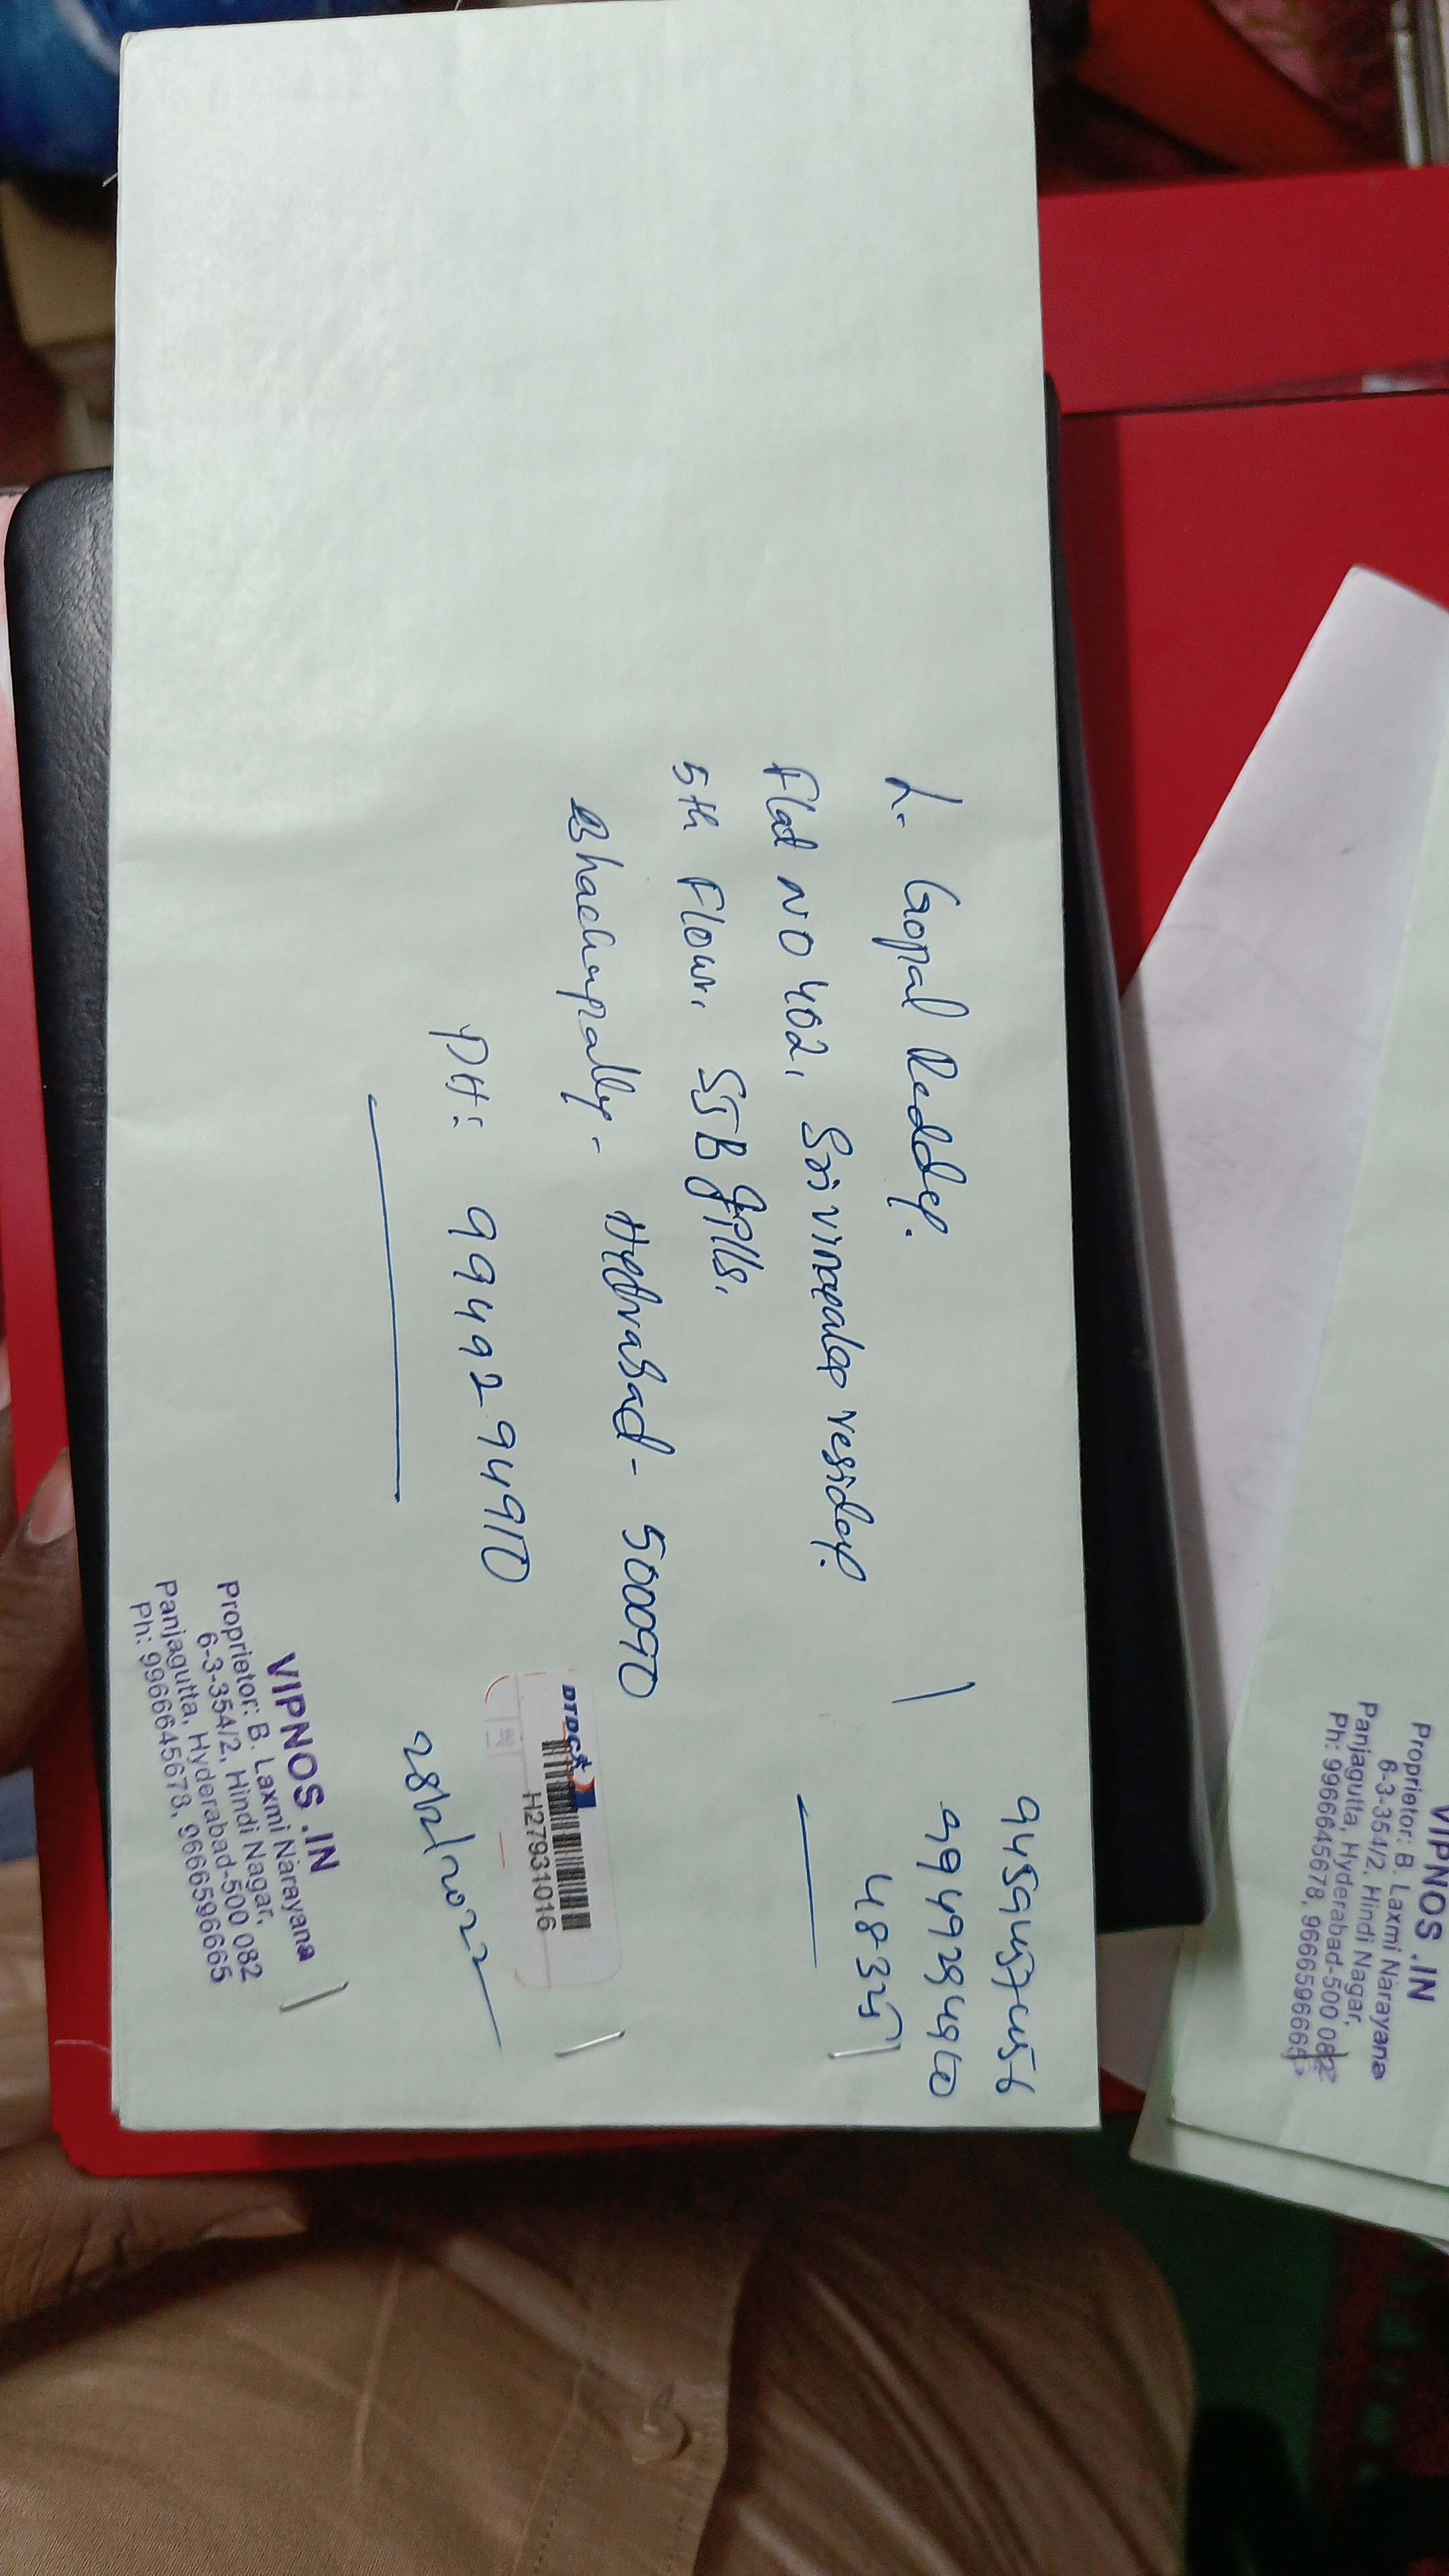 L. Gopal Reddy.
Flat NO 402, Sri vinayaka residcy.
5th Flour. SSB
Bhachupally - Hydrabad - 500090
PH: 9949294910
9459457456
9949294910
4834
DTDC
H27931016
28/12/2022
VIPNOS .IN
Proprietor: B. Laxmi Narayana
6-3-354/2, Hindi Nagar,
Panjagutta, Hyderabad-500 082
Ph: 9966645678, 9666596665
VIPNOS .IN
Proprietor: B. Laxmi Narayana
6-3-354/2, Hindi Nagar,
Panjagutta, Hyderabad-500 082
Ph: 9966645678, 9666596665